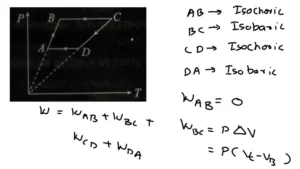 P
B
C
A
D
T
AB → Isochoric
BC → Isobaric
CD → Isochoric
DA → Isobaric
W = W_AB + W_BC +
W_CD + W_DA
W_AB = 0
W_BC = P ΔV
= P(V_C - V_B)